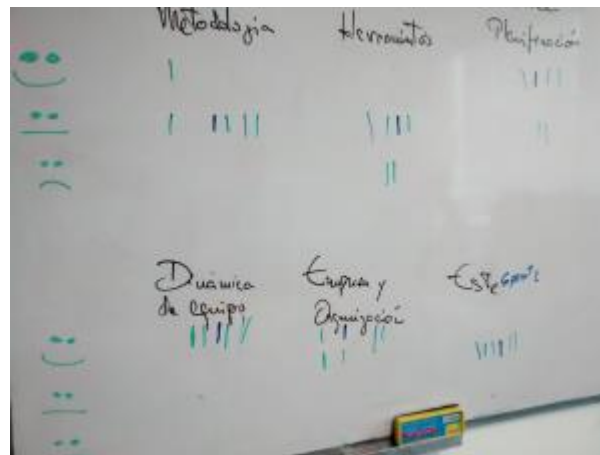 Metodología
Herramientas
Planificación
Dinámica
de equipo
Empresa y
Organización